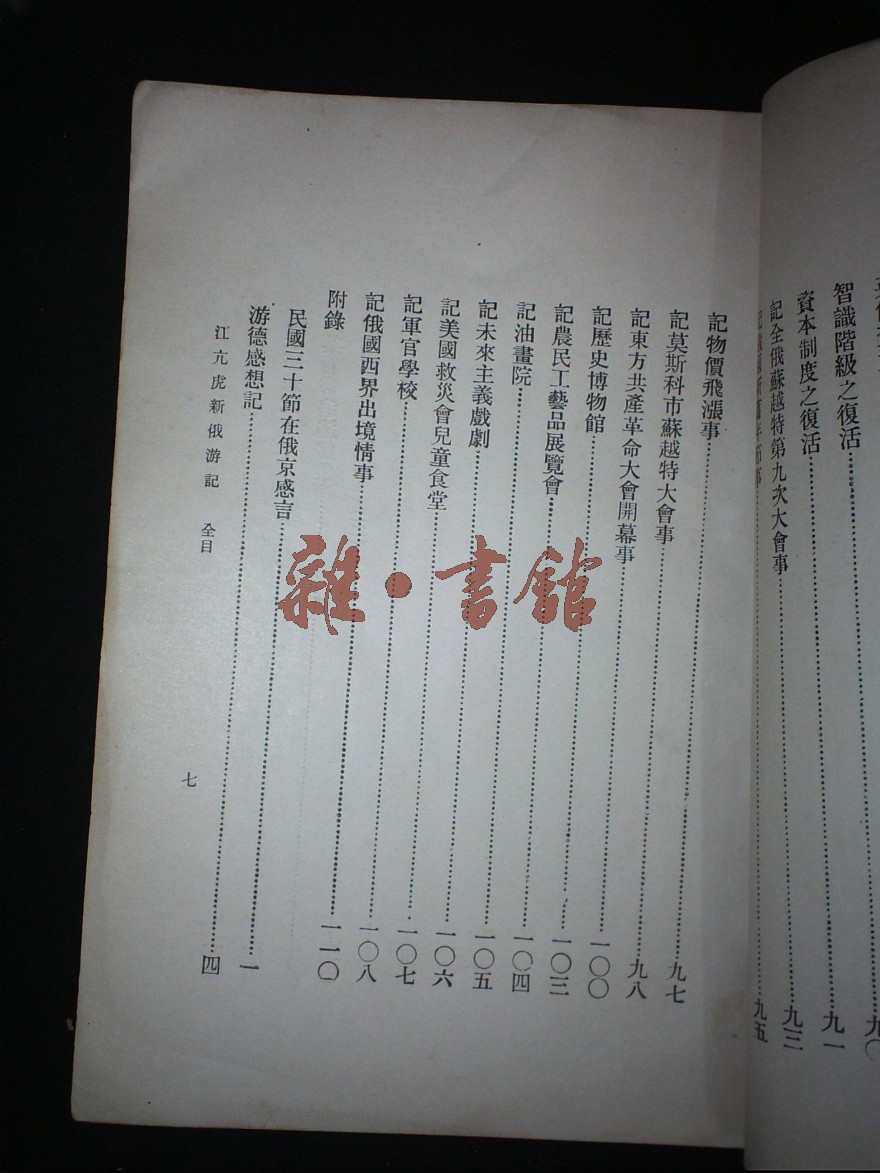 智識階級之復活 九〇
資本制度之復活 九一
記全俄蘇越特第九次大會事 九三
九五
記物價飛漲事 九七
記莫斯科市蘇越特大會事 九八
記東方共產革命大會開幕事 一〇〇
記歷史博物館 一〇三
記農民工藝品展覽會 一〇四
記油畫院 一〇五
記未來主義戲劇 一〇六
記美國救災會兒童食堂 一〇七
記軍官學校 一〇八
記俄國西界出境情事 一一〇
附錄
民國三十節在俄京感言 一
游德感想記 四
江亢虎新俄游記 全目 七
雜·書館